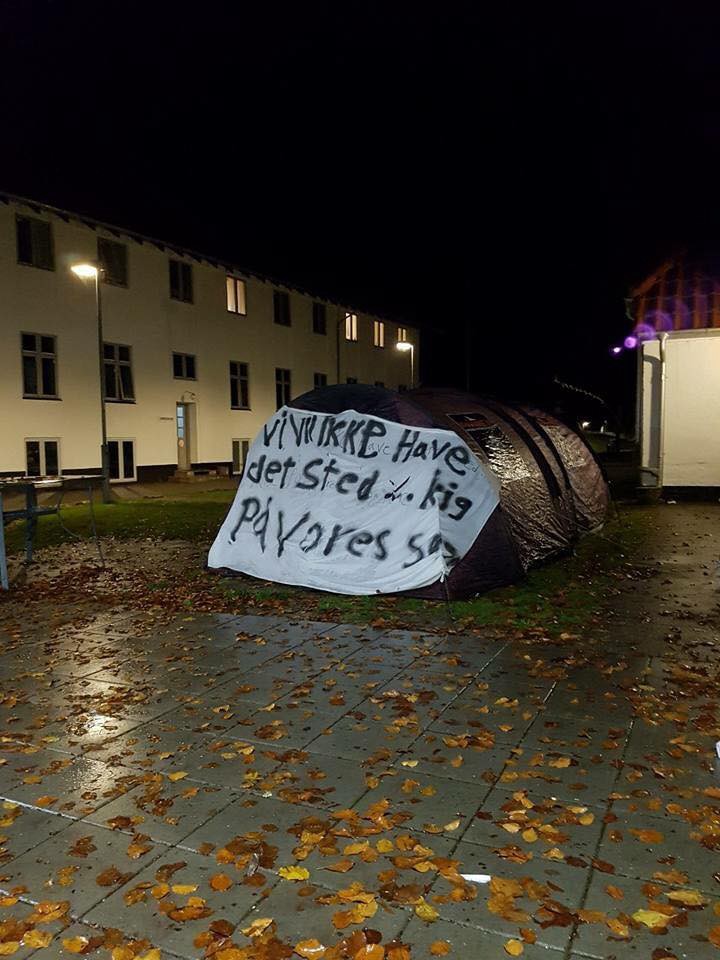 Vi Vil IKKE Have
det Sted ٪ kig
På Vores sag